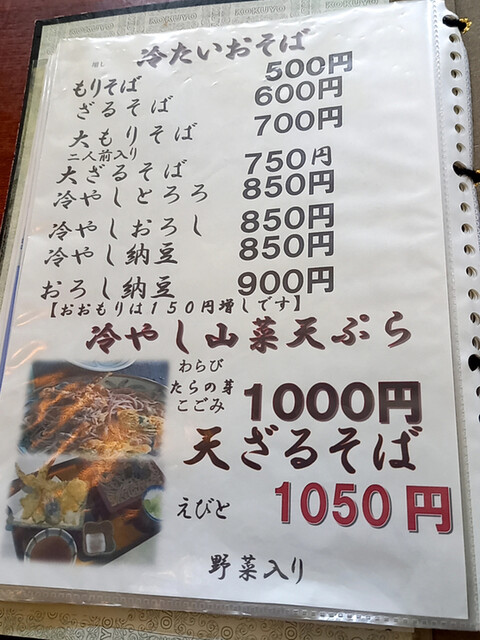 冷たいおそば
もりそば 500円
ざるそば 600円
大もりそば 700円
二人前入り
大ざるそば 750円
冷やしとろろ 850円
冷やしおろし 850円
冷やし納豆 850円
おろし納豆 900円
【おおもりは150円増しです】
冷やし山菜天ぷら
わらび
たらの芽
こごみ 1000円
天ざるそば
えびと 1050円
野菜入り